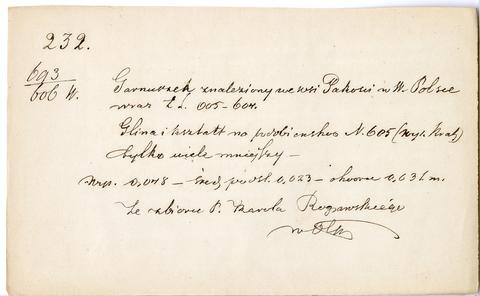 232.
693
606 W.
Garnuszek znaleziony we wsi Pakości w W. Polsce
wraz z L. 605-607.
Glina i kształt na podobieństwo N. 605 (wyl. Kraj)
tylko wiele mniejszy —
wys. 0,048 — śred. podst. 0,023 — otworu 0,031 m.
Ze zbioru P. Karola Rogawskiego
w Olp